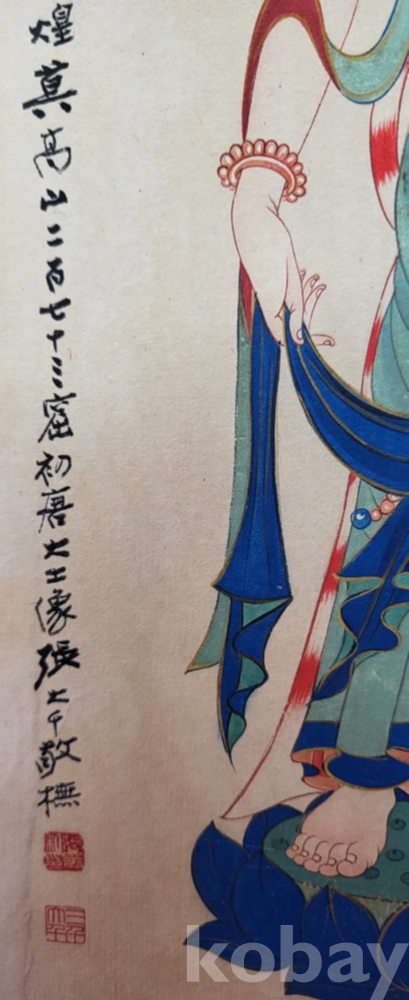 煌莫高山二百七十三窟初唐大士像張大千敬橅
kobay